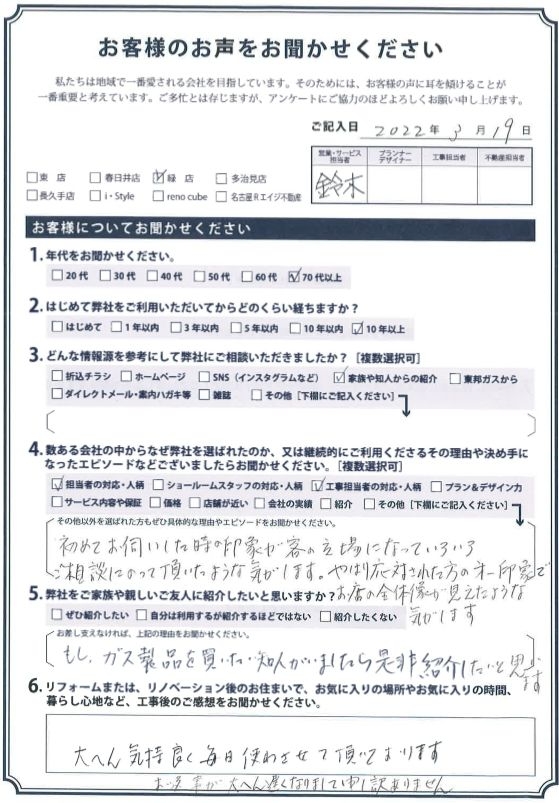 お客様のお声をお聞かせください
私たちは地域で一番愛される会社を目指しています。そのためには、お客様の声に耳を傾けることが
一番重要と考えています。ご多忙とは存じますが、アンケートにご協力のほどよろしくお願い申し上げます。
ご記入日 2022年 3月 19日
営業・サービス担当者 プランナーデザイナー 工事担当者 不動産担当者
鈴木
□東 店 □春日井店 ☑緑 店 □多治見店
□長久手店 □i・Style □reno cube □名古屋Rエイジ不動産
お客様についてお聞かせください
1. 年代をお聞かせください。
□20代 □30代 □40代 □50代 □60代 ☑70代以上
2. はじめて弊社をご利用いただいてからどのくらい経ちますか？
□はじめて □1年以内 □3年以内 □5年以内 □10年以内 ☑10年以上
3. どんな情報源を参考にして弊社にご相談いただきましたか？［複数選択可］
□折込チラシ □ホームページ □SNS（インスタグラムなど） ☑家族や知人からの紹介 □東邦ガスから
□ダイレクトメール・案内ハガキ等 □雑誌 □その他［下欄にご記入ください］
4. 数ある会社の中からなぜ弊社を選ばれたのか、又は継続的にご利用くださるその理由や決め手に
なったエピソードなどございましたらお聞かせください。［複数選択可］
☑担当者の対応・人柄 □ショールームスタッフの対応・人柄 ☑工事担当者の対応・人柄 □プラン＆デザイン力
□サービス内容や保証 □価格 □店舗が近い □会社の実績 □紹介 □その他［下欄にご記入ください］
その他以外を選ばれた方もぜひ具体的な理由やエピソードをお聞かせください。
初めてお伺いした時の印象が客の立場になっていろいろ
ご相談にのって頂いたような気がします。やはり応対された方の第一印象で
お店の全体像が見えたような
気がします
5. 弊社をご家族や親しいご友人に紹介したいと思いますか？
□ぜひ紹介したい □自分は利用するが紹介するほどではない □紹介したくない
お差し支えなければ、上記の理由をお聞かせください。
もし、ガス製品を買いたい知人がいましたら是非紹介したいと思います
6. リフォームまたは、リノベーション後のお住まいで、お気に入りの場所やお気に入りの時間、
暮らし心地など、工事後のご感想をお聞かせください。
大へん気持良く毎日使わさせて頂いております
お返事が大へん遅くなりまして申し訳ありません